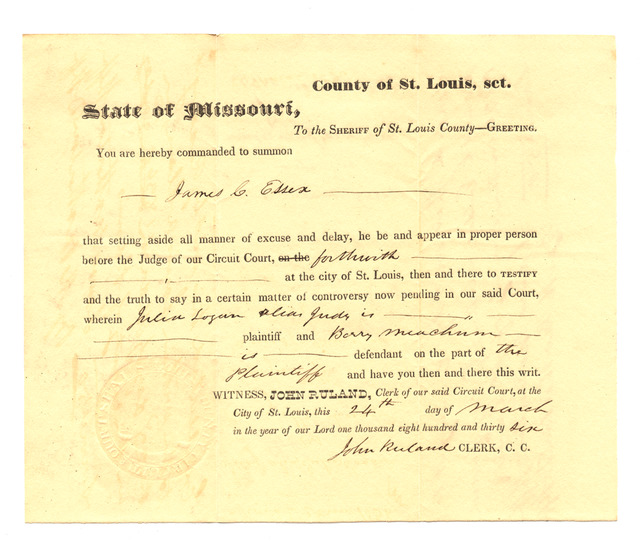 County of St. Louis, sct.
State of Missouri,
To the SHERIFF of St. Louis County—GREETING.
You are hereby commanded to summon
James C. Essex
that setting aside all manner of excuse and delay, he be and appear in proper person
before the Judge of our Circuit Court, on the forthwith
at the city of St. Louis, then and there to TESTIFY
and the truth to say in a certain matter of controversy now pending in our said Court,
wherein Julia Logan alias Judy is
plaintiff and Berry Meachum
is defendant on the part of the
Plaintiff and have you then and there this writ.
WITNESS, JOHN RULAND, Clerk of our said Circuit Court, at the
City of St. Louis, this 24th day of March
in the year of our Lord one thousand eight hundred and thirty six
John Ruland CLERK, C. C.